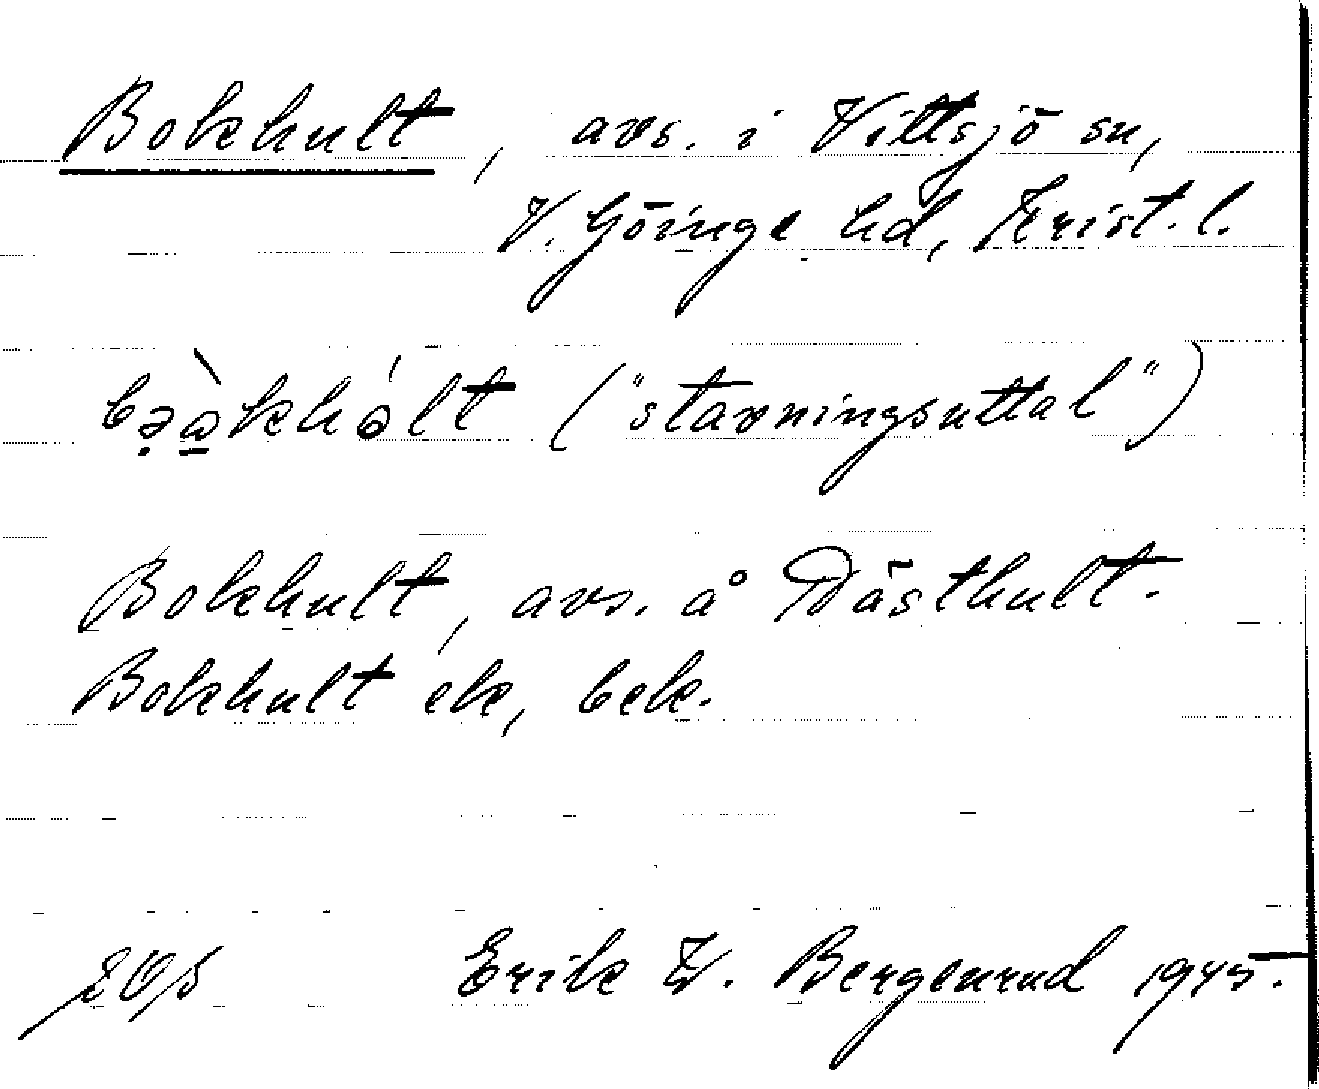 Bokhult, avs. i Vittsjö sn,
V. Göinge hd, Krist. l.
("stavningsuttal")
Bokhult, avs. å Dåsthult.
Bokhult ek, bek.
Erik W. Bergenrud 1945.